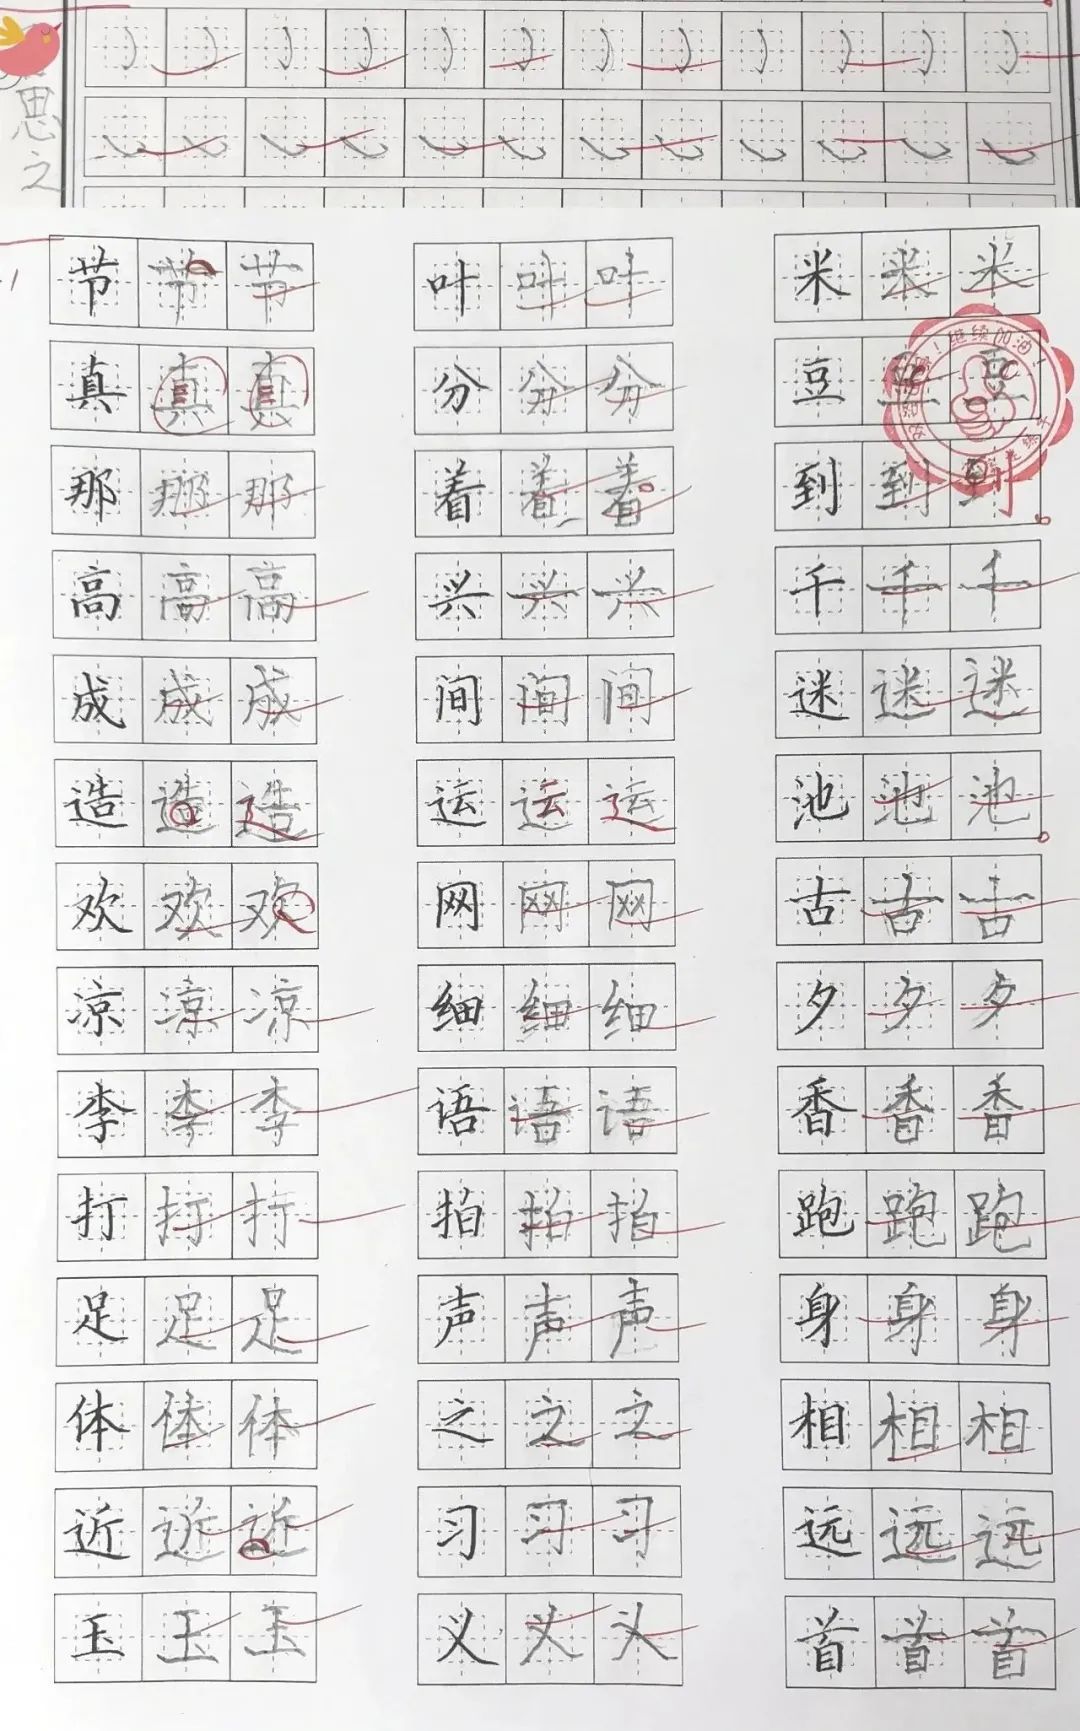 思之
节 节 节 叶 叶 叶 米 米 米
继续加油！
真 真 真 分 分 分 豆 豆 豆
那 那 那 着 着 着 到 到 到
高 高 高 兴 兴 兴 千 千 千
成 成 成 间 间 间 迷 迷 迷
造 造 造 运 运 运 池 池 池
欢 欢 欢 网 网 网 古 古 古
凉 凉 凉 细 细 细 夕 夕 夕
李 李 李 语 语 语 香 香 香
打 打 打 拍 拍 拍 跑 跑 跑
足 足 足 声 声 声 身 身 身
体 体 体 之 之 之 相 相 相
近 近 近 习 习 习 远 远 远
玉 玉 玉 义 义 头 首 首 首